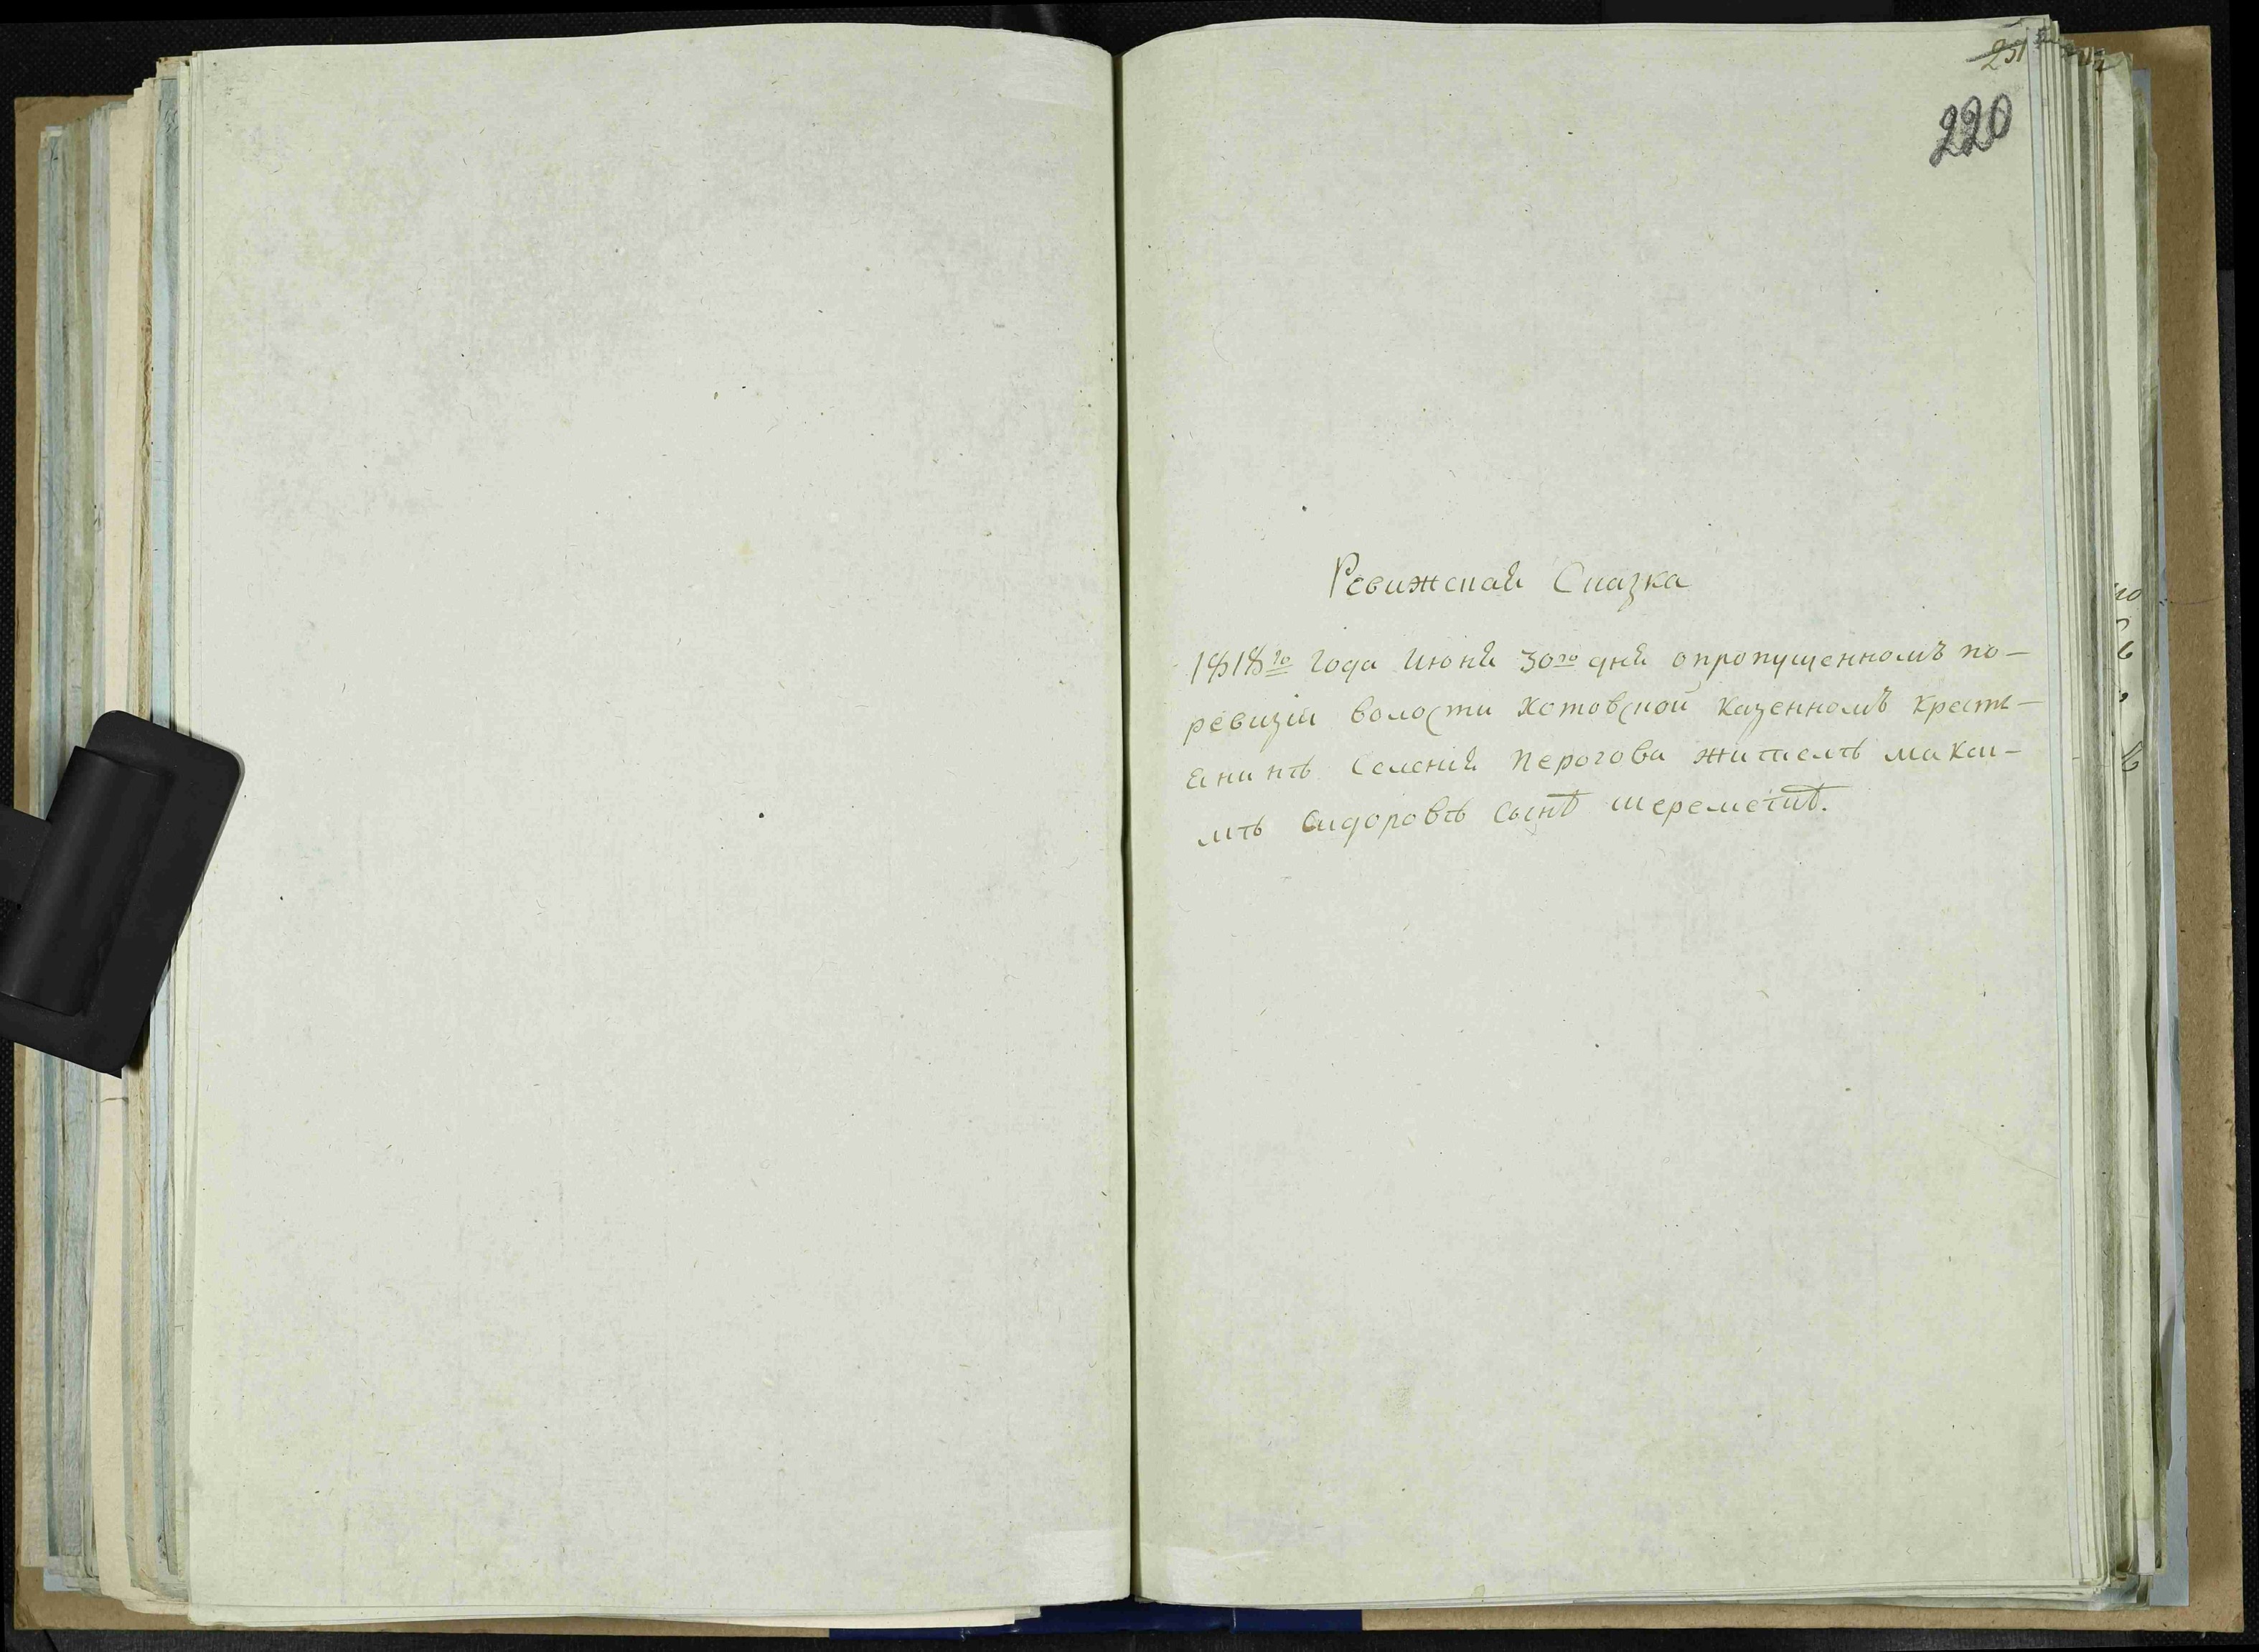 251
220
Ревижская Сказка
1818го года июня 30го дня опропущенномъ по-
ревизіи волости Хотовской казенномъ кресть-
янинъ Селенія Перогова жителъ макси-
мъ Сидоровъ Сынъ шереметъ.